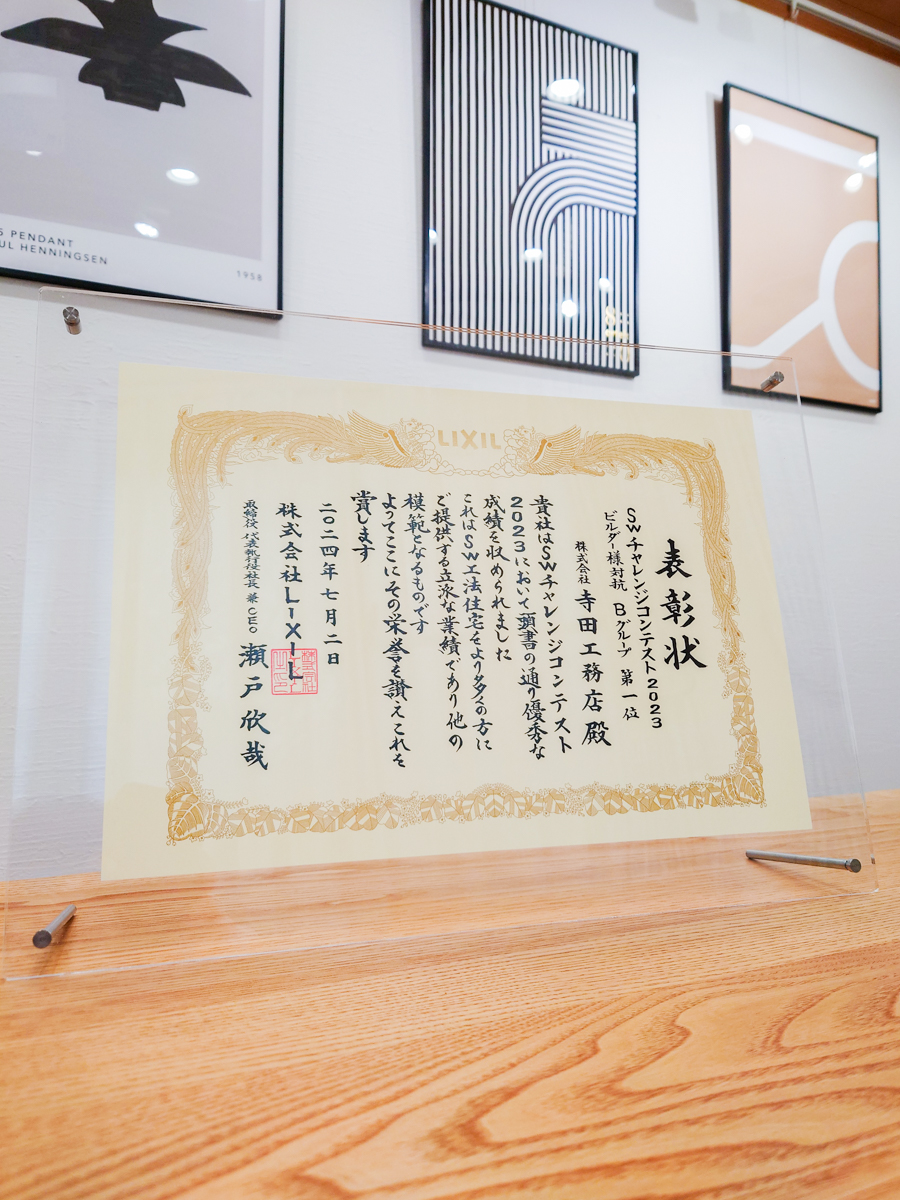 S PENDANT
UL HENNINGSEN
1958
LIXIL
表彰状
SWチャレンジコンテスト2023
ビルダー様対抗 Bグループ 第一位
株式会社 寺田工務店殿
貴社はSWチャレンジコンテスト
2023において頭書の通り優秀な
成績を収められました
これはSW工法住宅をより多くの方に
ご提供する立派な業績であり他の
模範となるものです
よってここにその栄誉を讃えこれを
賞します
二〇二四年七月二日
株式会社LIXIL
取締役 代表執行役社長 兼 CEO 瀬戸欣哉